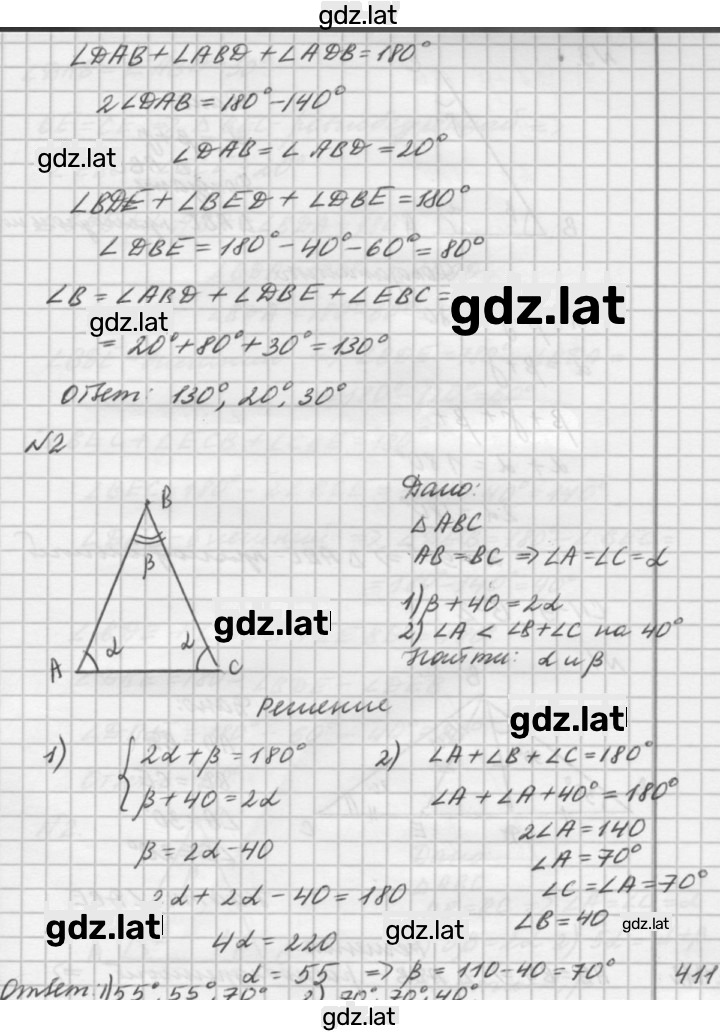 gdz.lat
∠DAB + ∠ABD + ∠ADB = 180°
2∠DAB = 180° - 140°
gdz.lat
∠DAB = ∠ABD = 20°
∠BDE + ∠BED + ∠DBE = 180°
∠DBE = 180° - 40° - 60° = 80°
∠B = ∠ABD + ∠DBE + ∠EBC =
gdz.lat
gdz.lat
= 20° + 80° + 30° = 130°
Ответ: 130°, 20°, 30°
№2
B
β
A
α
α
C
Дано:
△ABC
AB = BC ⇒ ∠A = ∠C = α
1) β + 40 = 2α
2) ∠A < ∠B + ∠C на 40°
Найти: α и β
gdz.lat
Решение
gdz.lat
1)
2α + β = 180°
β + 40 = 2α
β = 2α - 40
2α + 2α - 40 = 180
4α = 220
α = 55 ⇒ β = 110 - 40 = 70°
2) ∠A + ∠B + ∠C = 180°
∠A + ∠A + 40° = 180°
2∠A = 140
∠A = 70°
∠C = ∠A = 70°
∠B = 40
gdz.lat
gdz.lat
gdz.lat
411
Ответ: 1) 55°, 55°, 70° 2) 70°, 70°, 40°
gdz.lat